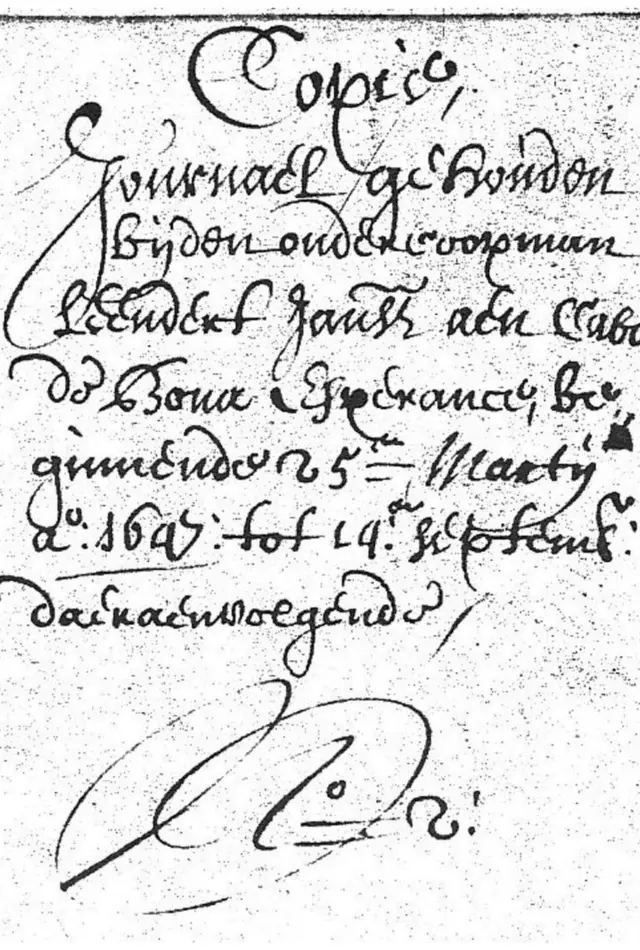 Copie,
Journael gehouden
bijden ondercoopman
Leendert Jansz aen Cabo
de Bona Esperance, be
ginnende 25en Martij
ao: 1647: tot 14.en Septemb:
daeraenvolgende,
No 2: